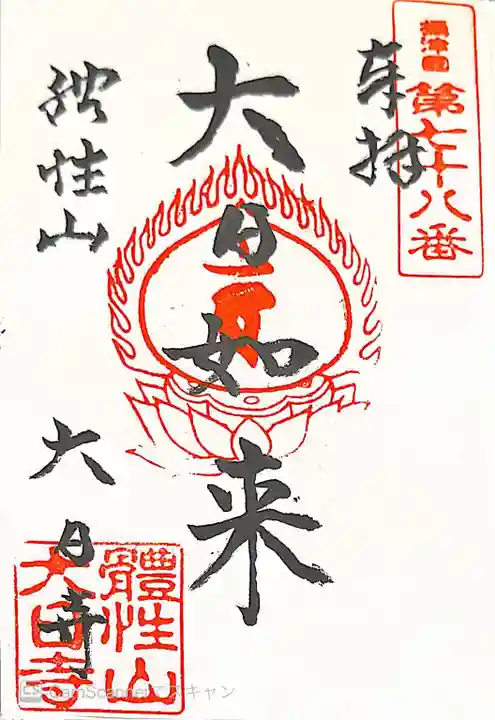 摂津国
第七十八番
奉拝
大日如来
体性山
大日寺
體性山
大日寺
CS CamScannerでスキャン